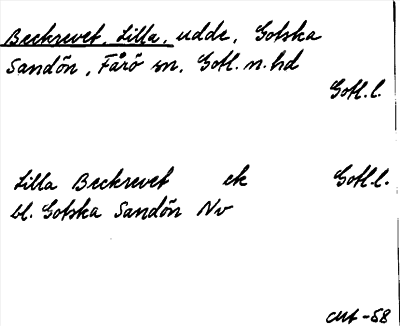 Beckrevet, Lilla, udde, Gotska
Sandön, Fårö sn, Gotl. n. hd
Gotl. l.
Lilla Beckrevet ek Gotl. l.
bl. Gotska Sandön Nv
-58